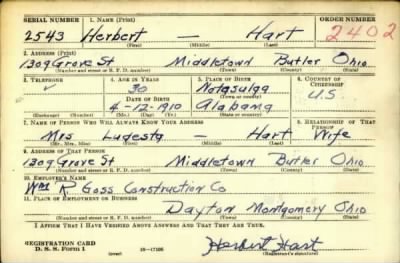 SERIAL NUMBER 1. NAME (Print) ORDER NUMBER
2543 Herbert — Hart 2402
(First) (Middle) (Last)
2. ADDRESS (Print)
1309 Grove St Middletown Butler Ohio
(Number and street or R. F. D. number) (Town) (County) (State)
3. TELEPHONE 4. AGE IN YEARS 5. PLACE OF BIRTH 6. COUNTRY OF CITIZENSHIP
30 Notasulga
DATE OF BIRTH (Town or county) U.S.
4-12-1910 Alabama
(Exchange) (Number) (Mo.) (Day) (Yr.) (State or country)
7. NAME OF PERSON WHO WILL ALWAYS KNOW YOUR ADDRESS 8. RELATIONSHIP OF THAT PERSON
Mrs Lugesta — Hart Wife
(Mr., Mrs., Miss) (First) (Middle) (Last)
9. ADDRESS OF THAT PERSON
1309 Grove St Middletown Butler Ohio
(Number and street or R. F. D. number) (Town) (County) (State)
10. EMPLOYER'S NAME
Wm R Goss Construction Co
11. PLACE OF EMPLOYMENT OR BUSINESS
Dayton Montgomery Ohio
(Number and street or R. F. D. number) (Town) (County) (State)
I AFFIRM THAT I HAVE VERIFIED ABOVE ANSWERS AND THAT THEY ARE TRUE.
REGISTRATION CARD
D. S. S. Form 1 (over) 16-17105 Herbert Hart
(Registrant's signature)